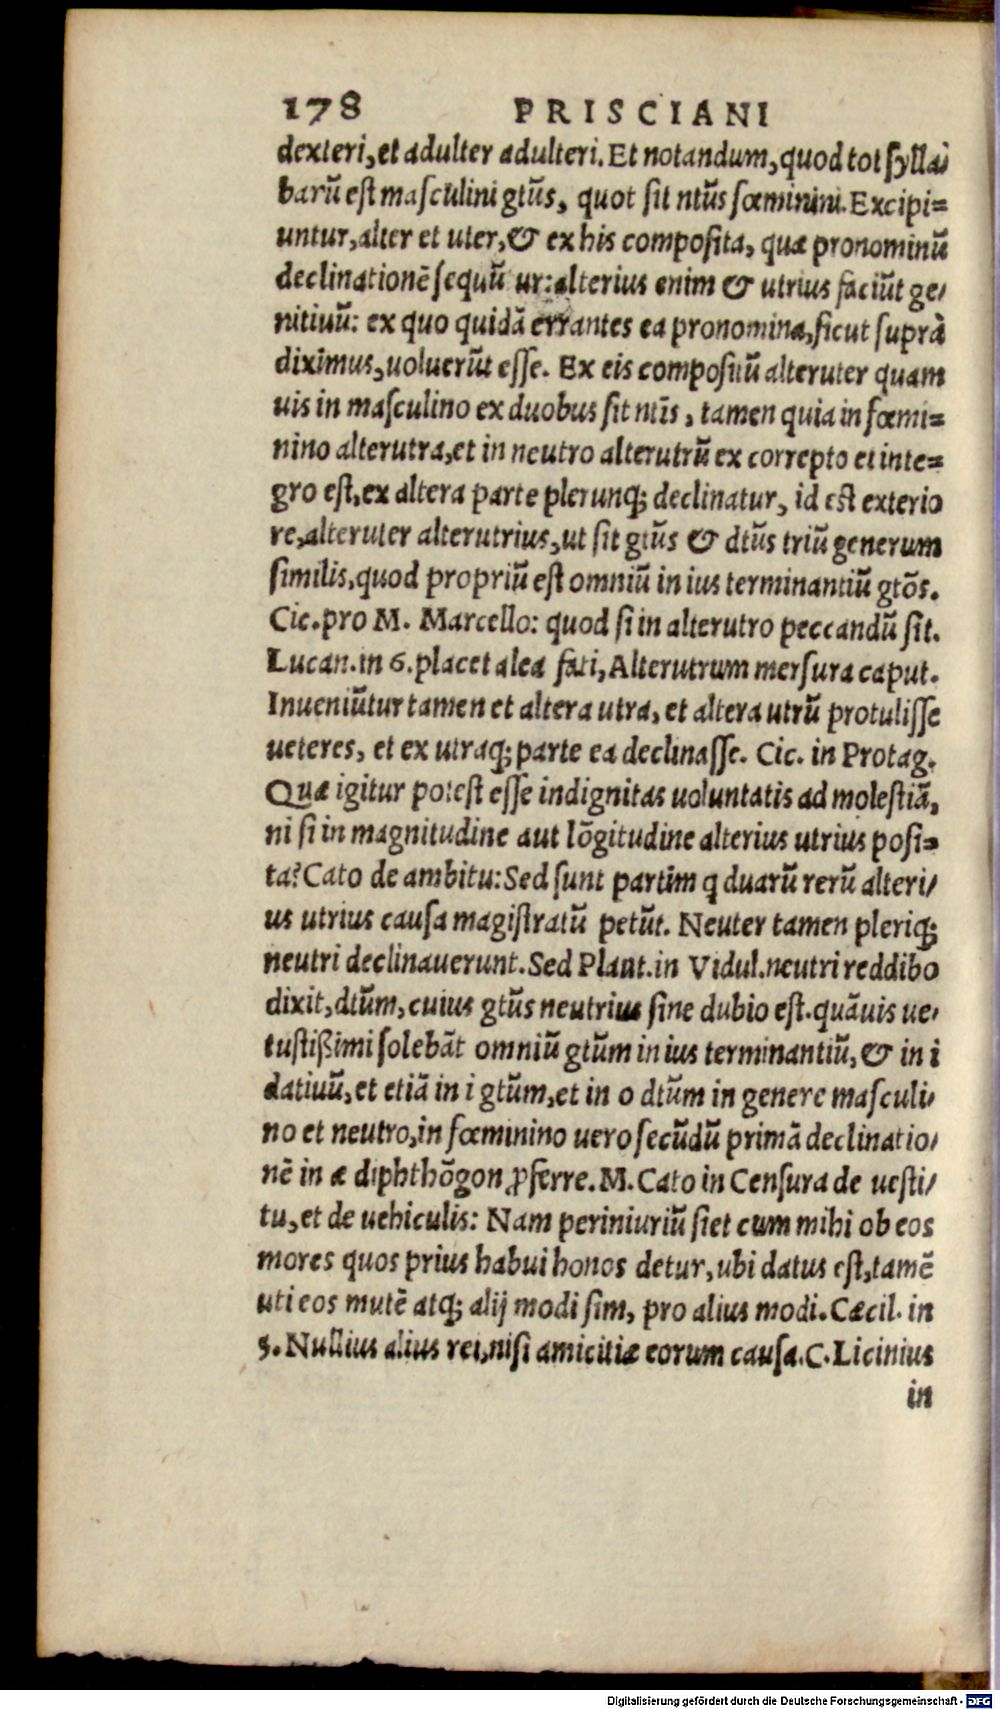 178 PRISCIANI
dexteri, et adulter adulteri. Et notandum, quod tot ſylla⸗
barū eſt maſculini gtūs, quot ſit ntūs fœminini. Excipi⸗
untur, alter et uter, & ex his compoſita, quæ pronominū
declinationē ſequūtur: alterius enim & utrius faciūt ge⸗
nitiuū: ex quo quidā errantes ea pronomina, ſicut ſuprà
diximus, uoluerūt eſſe. Ex eis compoſitū alteruter quam
uis in maſculino ex duobus ſit ntīs, tamen quia in fœmi⸗
nino alterutra, et in neutro alterutrū ex correpto et inte⸗
gro eſt, ex altera parte plerunq; declinatur, id eſt exterio
re, alteruter alterutrius, ut ſit gtūs & dtūs triū generum
ſimilis, quod propriū eſt omniū in ius terminantiū gtōs.
Cic. pro M. Marcello: quod ſi in alterutro peccandū ſit.
Lucan. in 6. placet alea fati, Alterutrum merſura caput.
Inueniūtur tamen et altera utra, et altera utrū protuliſſe
ueteres, et ex utraq; parte ea declinaſſe. Cic. in Protag.
Quæ igitur poteſt eſſe indignitas uoluntatis ad moleſtiā,
ni ſi in magnitudine aut lōgitudine alterius utrius poſi⸗
ta? Cato de ambitu: Sed ſunt partim q duarū rerū alteri⸗
us utrius cauſa magiſtratū petūt. Neuter tamen pleriq;
neutri declinauerunt. Sed Plaut. in Vidul. neutri reddibo
dixit, dtūm, cuius gtūs neutrius ſine dubio eſt. quāuis ue⸗
tuſtißimi ſolebāt omniū gtūm in ius terminantiū, & in i
datiuū, et etiā in i gtūm, et in o dtūm in genere maſculi⸗
no et neutro, in fœminino uero ſecūdū primā declinatio⸗
nē in æ diphthōgon ꝓferre. M. Cato in Cenſura de ueſti⸗
tu, et de uehiculis: Nam periniuriū ſiet cum mihi ob eos
mores quos prius habui honos detur, ubi datus eſt, tamē
uti eos mutē atq; alij modi ſim, pro alius modi. Cæcil. in
5. Nullius alius rei, niſi amicitiæ eorum cauſa. C. Licinius
in
Digitalisierung gefördert durch die Deutsche Forschungsgemeinschaft - DFG